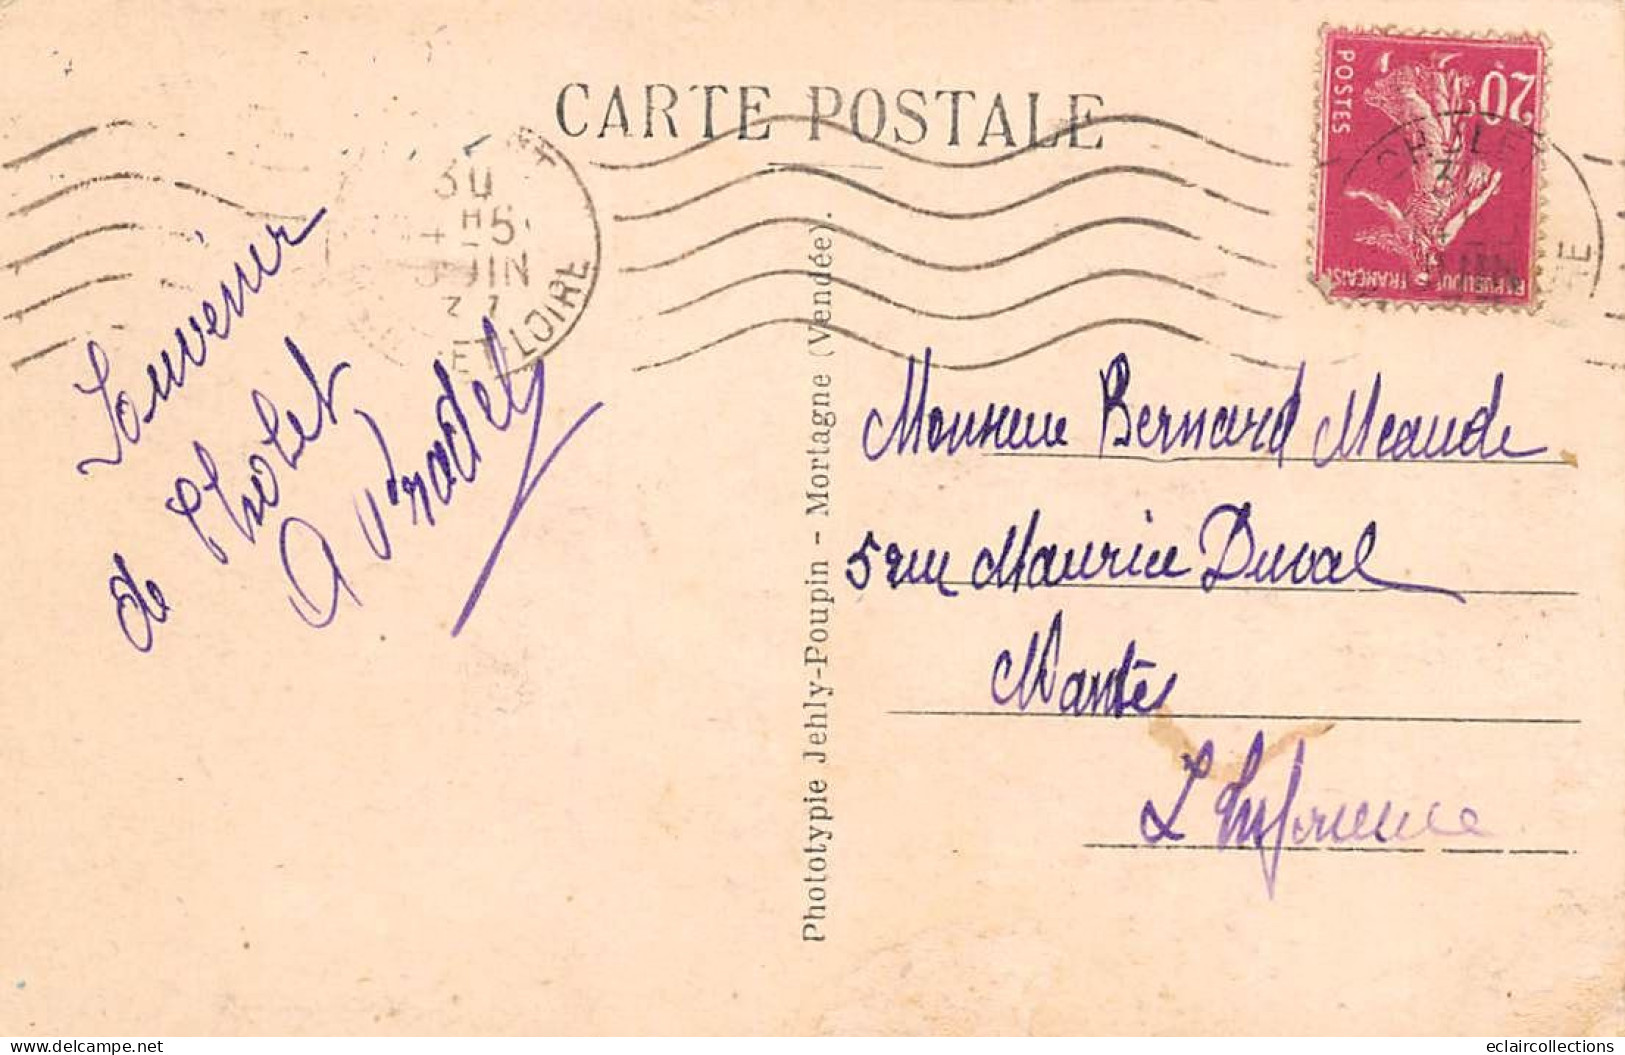 CARTE POSTALE
POSTES
20
REPUBLIQUE FRANÇAISE
CHOLET
30
4 H 15
JUIN
37
ET-LOIRE
Souvenir
de Cholet
Monsieur Bernard Meaude
5 rue Maurice Duval
Nantes
L Inférieure
Phototypie Jehly-Poupin - Mortagne (Vendée).
delcampe.net
eclaircollections